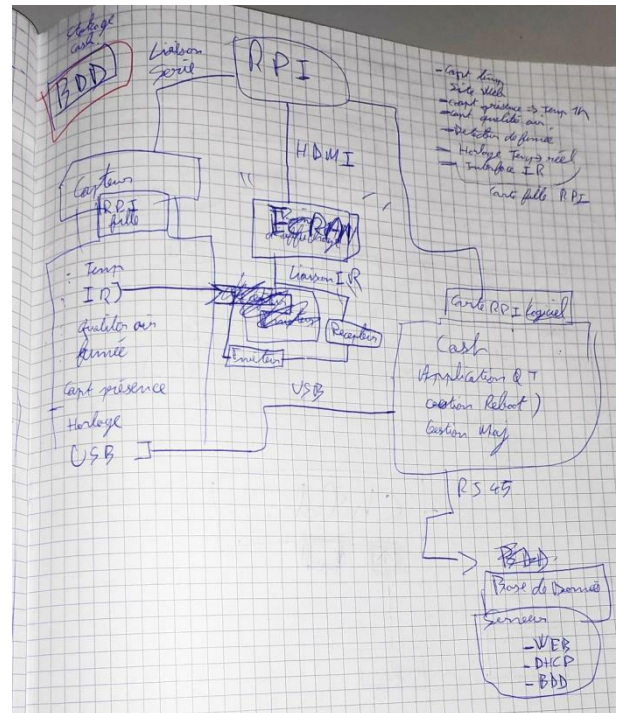 stockage
cash
BDD
Liaison
Serie
RPI
- Capt temp
Site Web
- capt présence => Temp 1h
- capt qualité air
- Détection de fumée
- Horloge Temps réel
- Interface IR
Carte fille RPI
HDMI
Capteurs
RPI
fille
ECRAN
Liaison IR
Recepteur
Emetteur
- Temp
- IR
qualiter air
fumée
Capt présence
Horloge
USB
USB
Carte RPI Logiciel
Cash
Application QT
Gestion Reboot
Gestion Maj
RS 45
BDD
Base de Donnée
Serveur
- WEB
- DHCP
- BDD